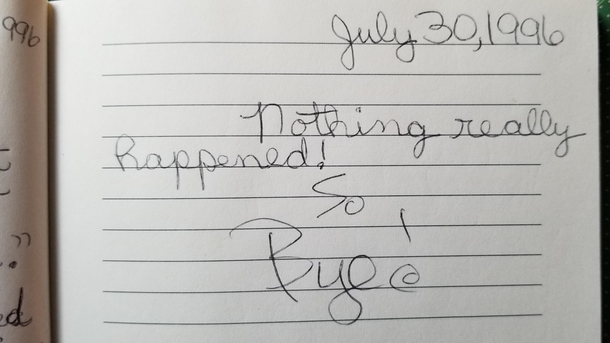 996
July 30, 1996
Nothing really
happened!
So
Bye!